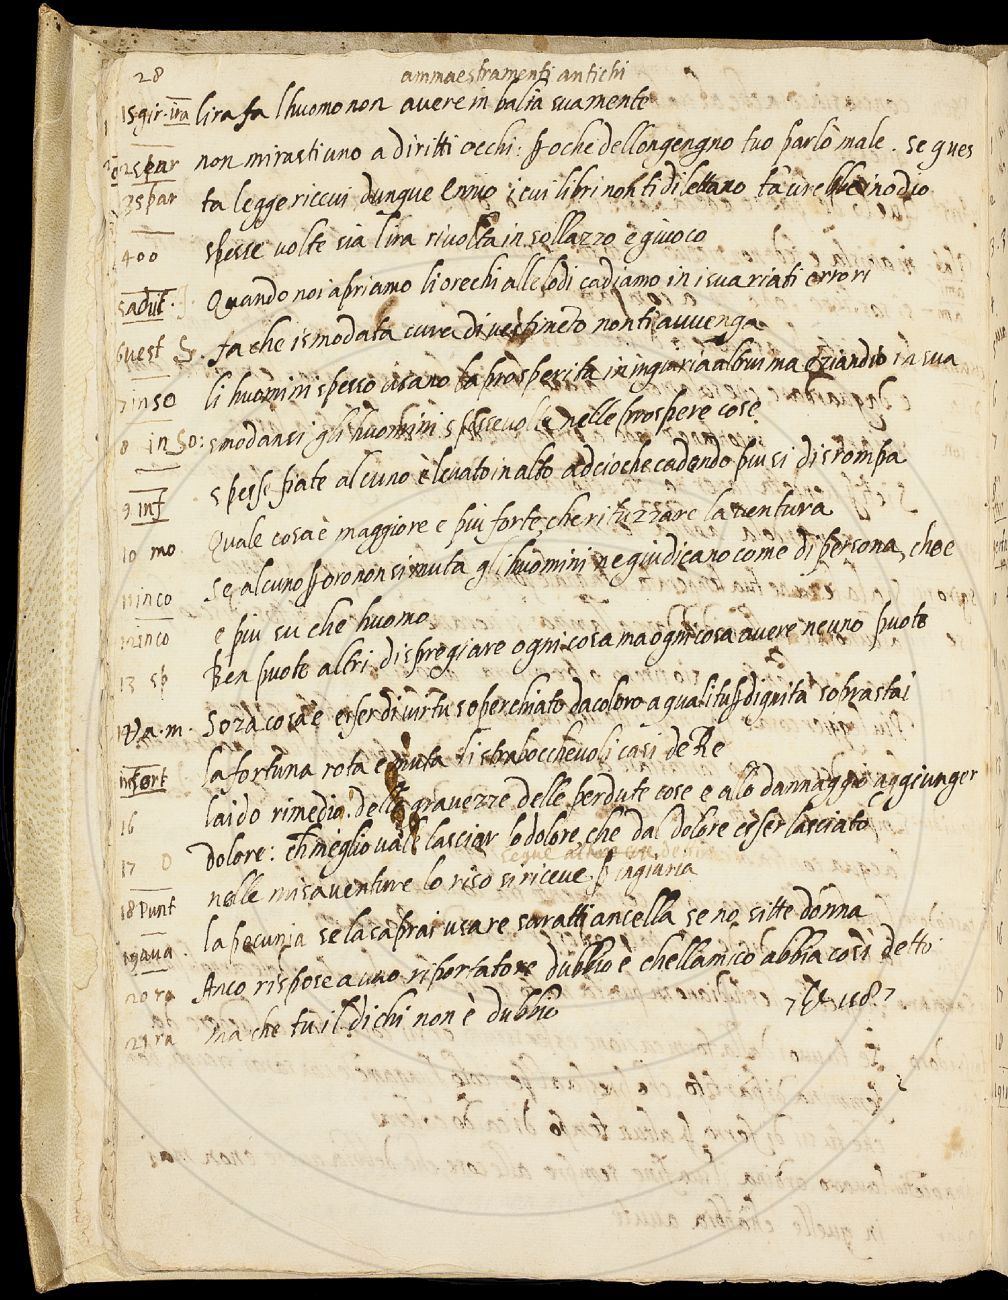 28
ammaestramenti antichi
15 gir. ira lira fa lhuomo non avere in balia sua mente
2 spar non mirasti uno a diritti occhi: p che dellongengno tuo parlò male. se ques
3 spar ta legge riccui dunque Ennio i cui libri non ti dilettano
400 spesse volte sia lira rivolta in sollazzo e givoco
5 adul. Quando noi apriamo li orechi alle lodi cadiamo in isvariati errori
6 vest fa che ismodata cura di vestimeto non ti avvenga
7 inso li huomini spesso usano la prosperita in ingiuria altrui ma eziandio in sua
8 in So: smodansi gli huomini spessevolte nelle prospere cose
9 inf spesse fiate alcuno è levato in alto adcioche cadendo piu si disrompa
10 mo Quale cosa è maggiore e piu forte che rituzzare la ventura
11 inco se alcuno non si muta gli huomini ne giudicano come di persona, che e
12 inco e piu su che huomo
13 sp Ben puote altri dispregiare ogni cosa ma ogni cosa avere neuno puote
14 va. m. Soza cosa è esser di virtu soperchiato da coloro a quali tu p dignita sobrastai
15 fort la fortuna rota e muta li straboccheuoli casi de Re
16 laido rimedio delle gravezze delle perdute cose e a lo dannaggio aggiunger
dolore: meglio vale lasciar lo dolore, che dal dolore esser lasciato
17 nelle misaventure lo riso si riceve p ingiuria
18 Punt la pecunia se la saprai usare saratti ancella se no sitte donna
19 ava. Anco rispose a uno riportatore dubbio è chellamico abbia così detto
20 ra ma che tu il dichi non è dubbio
21 ra